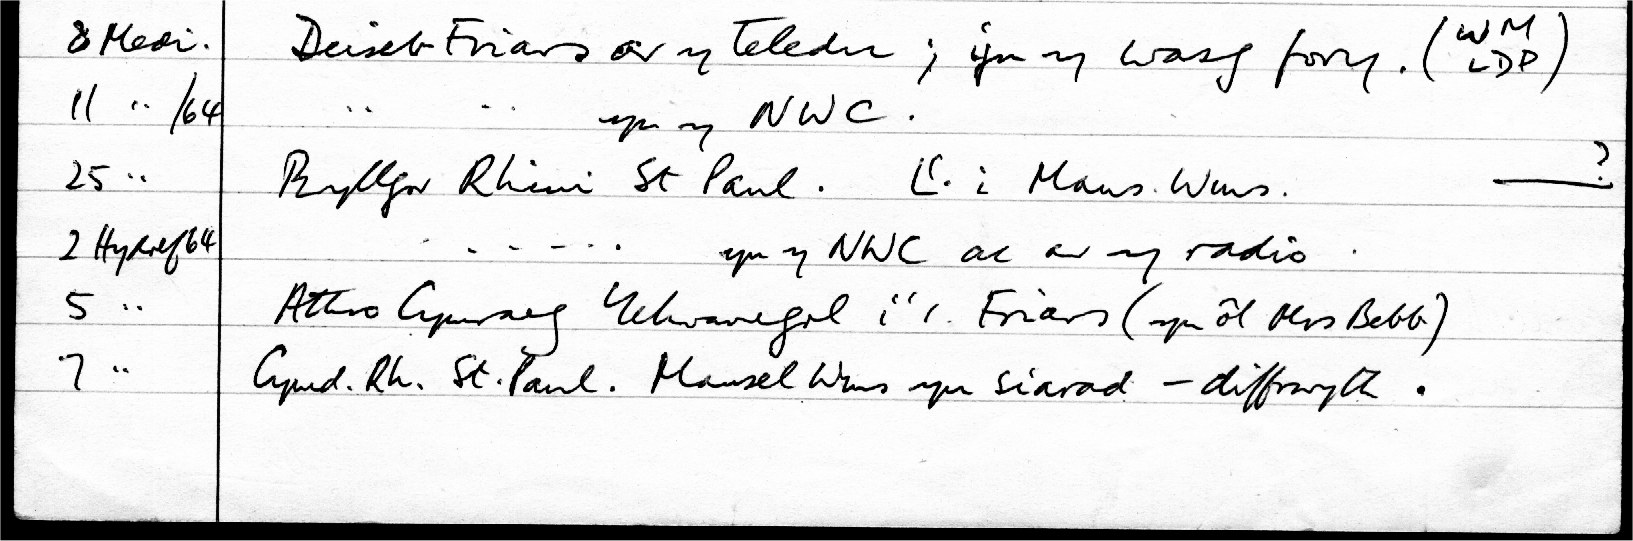 8 Medi. Deiseb Friars ar y Teledu ; yn y wasg fory. (WM LDP)
11 " /64 " " yn y NWC .
25 " Pwyllgor Rhieni St Paul. Ll. i Maws. Wms. ?
2 Hydref 64 . - - - - . yn y NWC ac ar y radio .
5 " Athro Cymraeg Ychwanegol i'r Friars (yn ôl Mrs Bebb)
7 " Cymd. Rh. St. Paul. Mansel Wms yn siarad – diffrwyth .